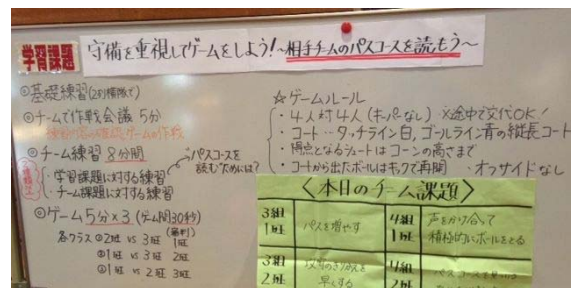 学習課題
守備を重視してゲームをしよう!~相手チームのパスコースを読もう~
◎基礎練習
◎チームで作戦会議 5分
◎チーム練習 8分間
・学習課題に対する練習
・チーム課題に対する練習
パスコースを
読むためには?
◎ゲーム5分×3 (ゲーム間30秒)
各クラス ①2班 vs 3班 (審判)1班
②1班 vs 3班 2班
③1班 vs 2班 3班
☆ゲームルール
・4人対4人(キーパーなし) ※途中で交代OK!
・コート…タッチライン白,ゴールライン青の縦長コート
・得点となるシュートはコーンの高さまで
・コートから出たボールはキックで再開 ・オフサイドなし
〈本日のチーム課題〉
3組
1班
パスを増やす
4組
1班
声をかけ合って
積極的にボールをとる
3組
2班
攻守のきりかえを
早くする
4組
2班